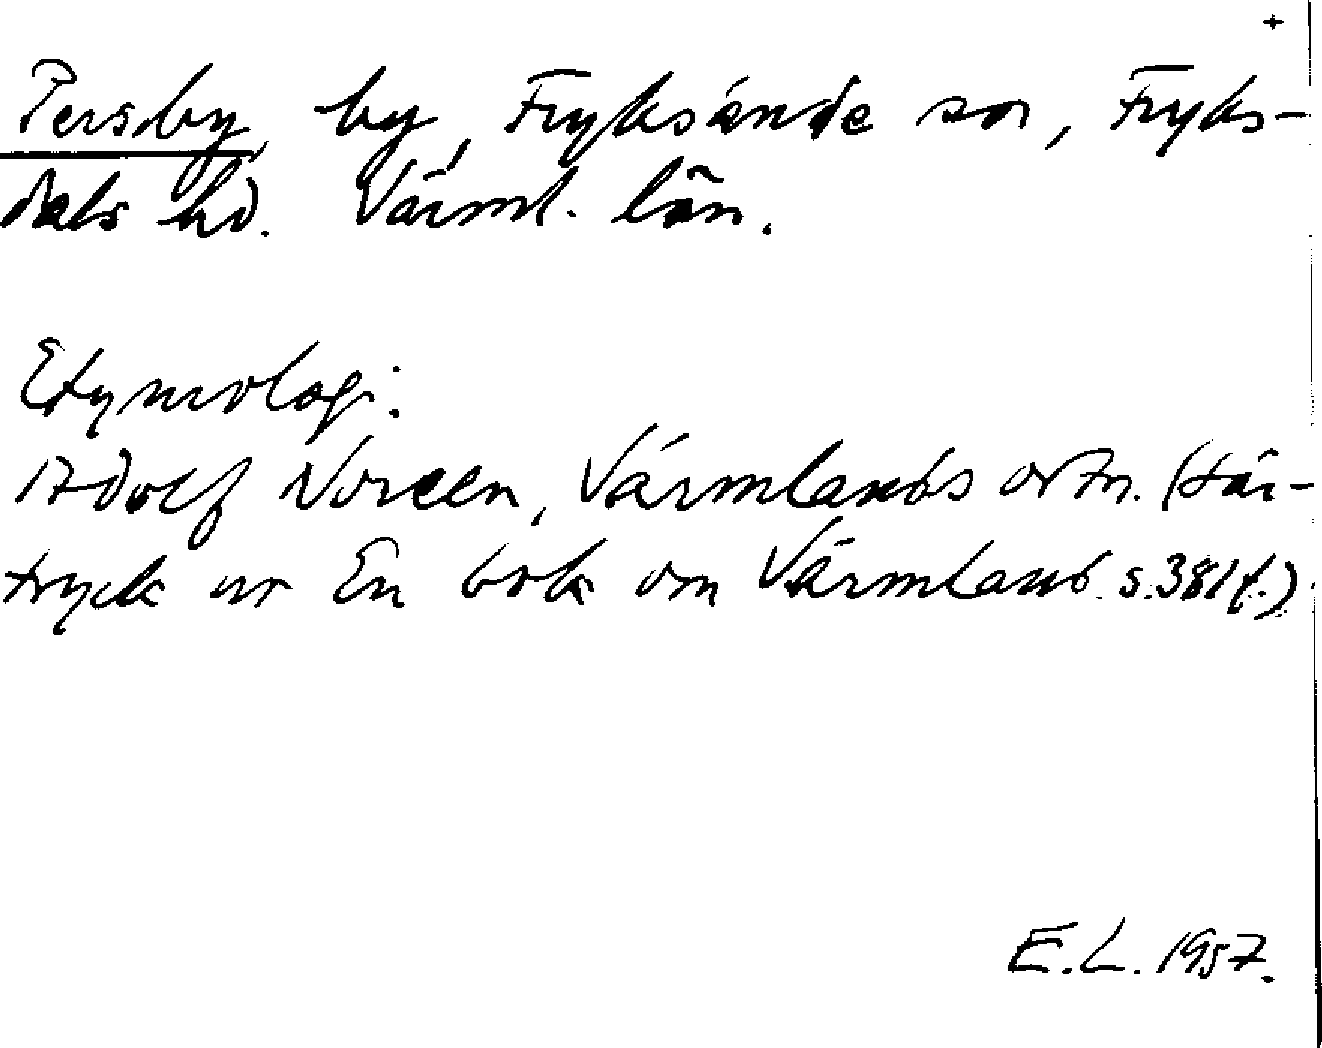 +
Persby, by, Fryksände sn, Fryks-
dals hd. Värml. län.
Etymologi:
Adolf Noreen, Värmlands ortn. (Sär-
tryck ur En bok om Värmland s.381f.)
E.L. 1957.